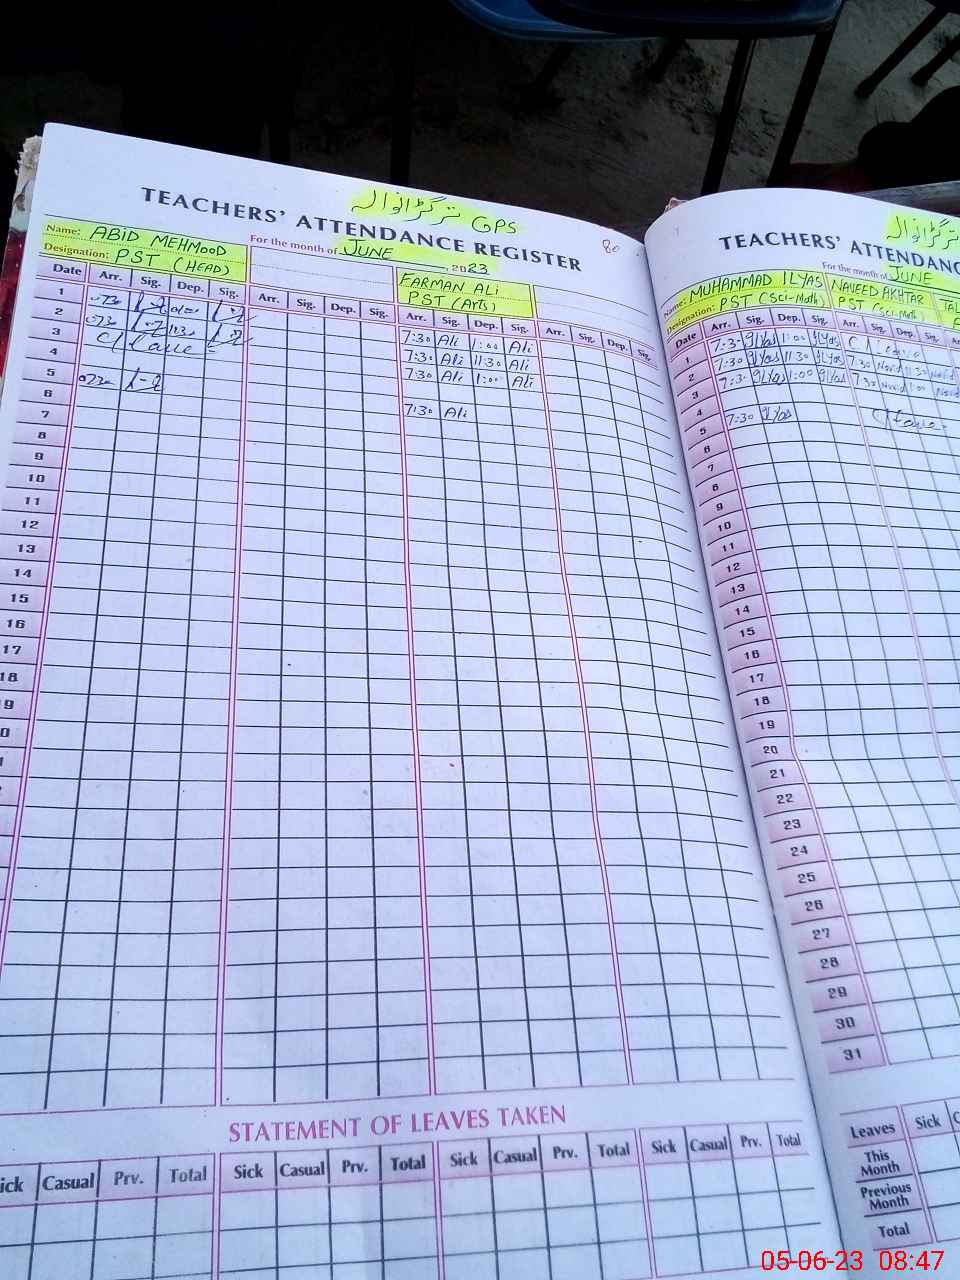 ترگڑانوالہ GPS
TEACHERS' ATTENDANCE REGISTER
80
Name: ABID MEHMOOD
For the month of JUNE, 2023
Designation: PST (HEAD)
FARMAN ALI
PST (Arts)
Date Arr. Sig. Dep. Sig. Arr. Sig. Dep. Sig. Arr. Sig. Dep. Sig. Arr. Sig. Dep. Sig.
1 0730 7:30 Ali 1:00 Ali
2 0730 1130 7:30 Ali 11:30 Ali
3 C/Leave 7:30 Ali 1:00 Ali
4
5 0730 7:30 Ali
6
7
8
9
10
11
12
13
14
15
16
17
18
STATEMENT OF LEAVES TAKEN
Casual Prv. Total Sick Casual Prv. Total Sick Casual Prv. Total Sick Casual Prv. Total
ترگڑانوالہ
TEACHERS' ATTENDANC
For the month of JUNE
Name: MUHAMMAD ILYAS NAVEED AKHTAR
Designation: PST (Sci-Math) PST (Sci-Math)
Date Arr. Sig. Dep. Sig. Arr. Sig. Dep. Sig.
1 7:30 ILYas 1:00 ILYas C/Leave
2 7:30 ILYas 11:30 ILYas 7:30 Navid 11:30 Navid
3 7:30 ILYas 1:00 ILYas 7:30 Navid 1:00 Navid
4
5 7:30 ILYas C/Leave
6
7
8
9
10
11
12
13
14
15
16
17
18
19
20
21
22
23
24
25
26
27
28
29
30
31
Leaves Sick
This Month
Previous Month
Total
05-06-23 08:47